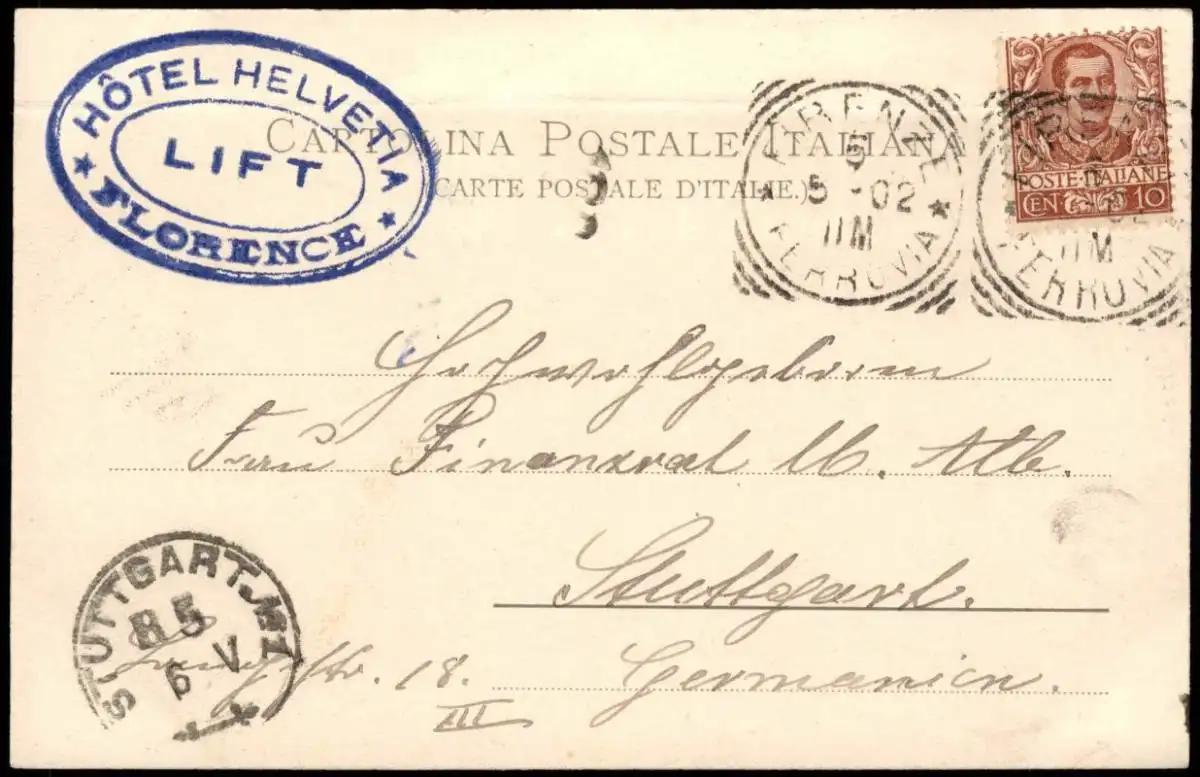 HÔTEL HELVETIA
LIFT
★ FLORENCE ★
CARTOLINA POSTALE ITALIANA
(CARTE POSTALE D'ITALIE.)
FIRENZE
5
5 -02
11M
★ FERROVIA ★
POSTE·ITALIANE
CENT 10
11M
FERROVIA
Hochwohlgeboren
Frau Finanzrat
Stuttgart.
Germanien.
18.
III
STUTTGART. No 1
6 V